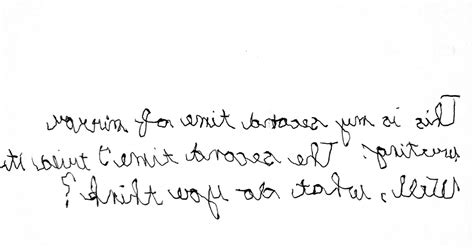 This is my second time of mirror
writing. The second time I
Well, what do you think?